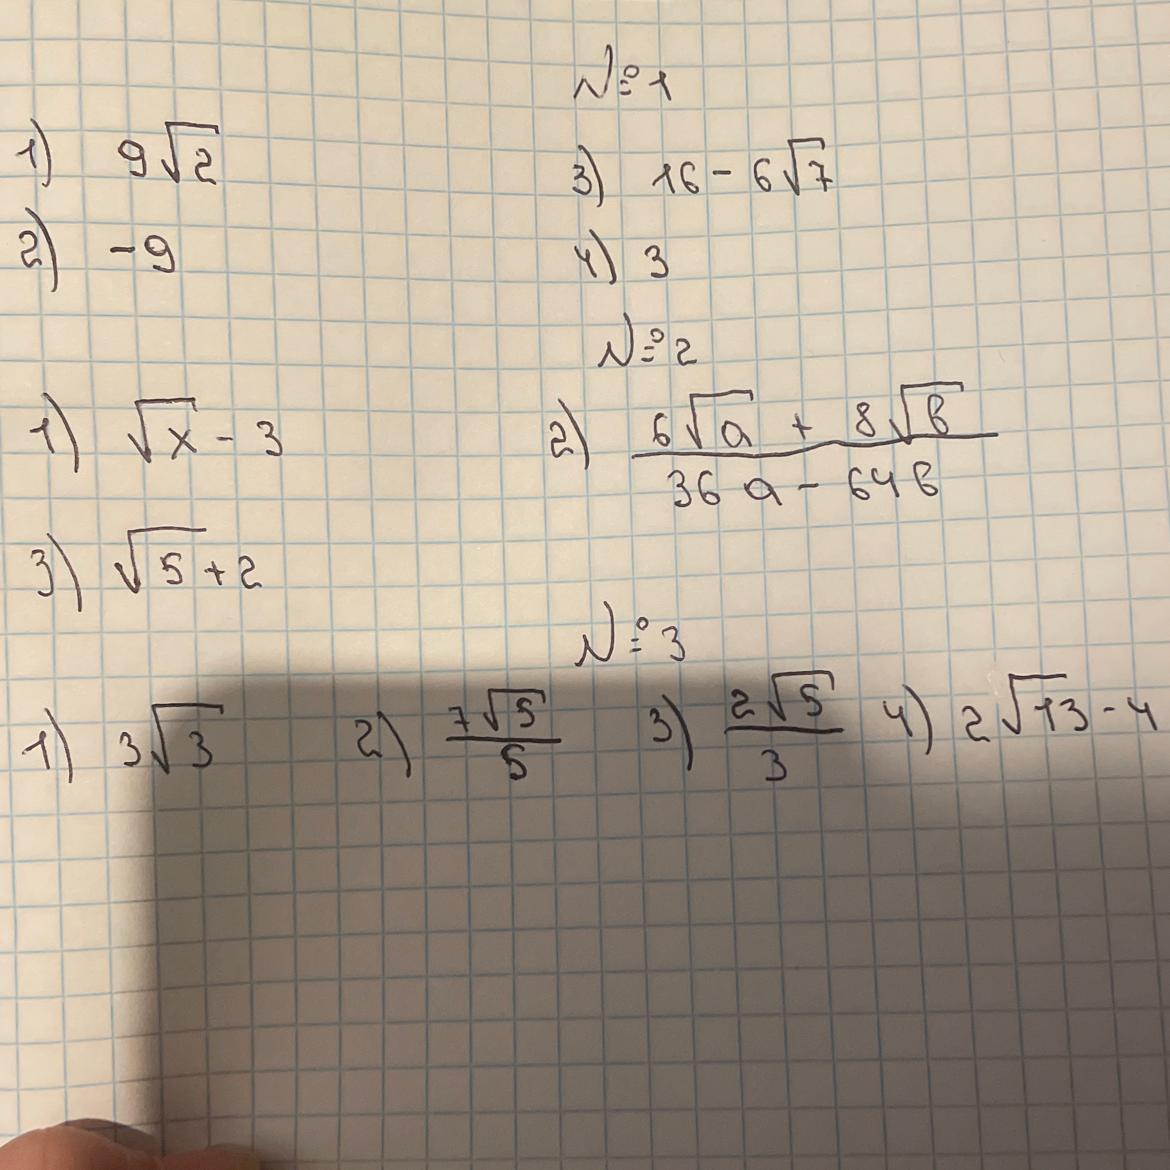 №1
1) 9√2 3) 16 - 6√7
2) -9 4) 3
№2
1) √x - 3 2) (6√a + 8√b)/(36a - 64b)
3) √5 + 2
№3
1) 3√3 2) 7√5/5 3) 2√5/3 4) 2√13 - 4